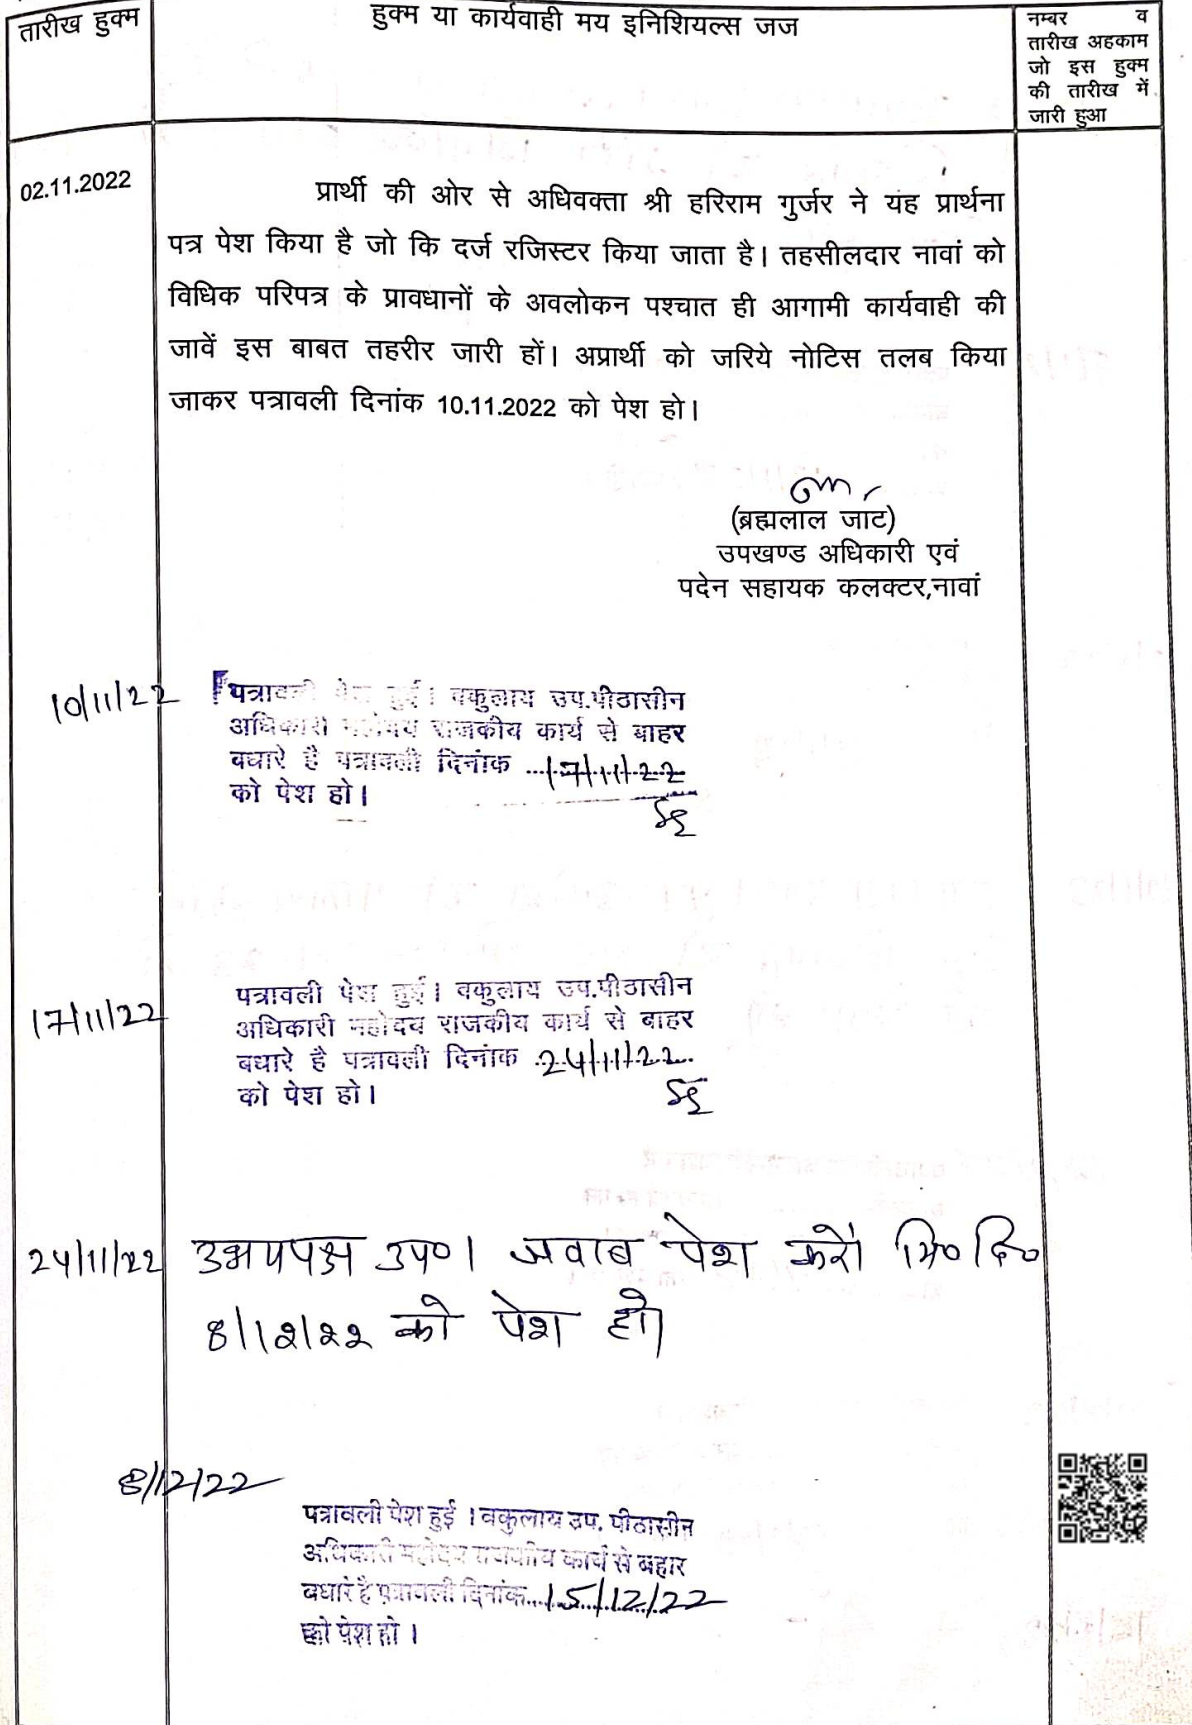 तारीख हुक्म
हुक्म या कार्यवाही मय इनिशियल्स जज
नम्बर व
तारीख अहकाम
जो इस हुक्म
की तारीख में
जारी हुआ
02.11.2022
प्रार्थी की ओर से अधिवक्ता श्री हरिराम गुर्जर ने यह प्रार्थना
पत्र पेश किया है जो कि दर्ज रजिस्टर किया जाता है। तहसीलदार नावां को
विधिक परिपत्र के प्रावधानों के अवलोकन पश्चात ही आगामी कार्यवाही की
जावें इस बाबत तहरीर जारी हों। अप्रार्थी को जरिये नोटिस तलब किया
जाकर पत्रावली दिनांक 10.11.2022 को पेश हो।
(ब्रह्मलाल जाट)
उपखण्ड अधिकारी एवं
पदेन सहायक कलक्टर,नावां
10/11/22
पत्रावली पेश हुई। वकुलाय उप.पीठासीन
अधिकारी महोदय राजकीय कार्य से बाहर
बधारे है पत्रावली दिनांक 17/11/22
को पेश हो।
17/11/22
पत्रावली पेश हुई। वकुलाय उप.पीठासीन
अधिकारी महोदय राजकीय कार्य से बाहर
बधारे है पत्रावली दिनांक 24/11/22
को पेश हो।
24/11/22
उभयपक्ष उप०। जवाब पेश करें। मि० दि०
8/12/22 को पेश हो।
8/12/22
पत्रावली पेश हुई । वकुलाय उप. पीठासीन
अधिकारी महोदय राजकीय कार्य से बहार
बधारे है पत्रावली दिनांक 15/12/22
को पेश हो ।